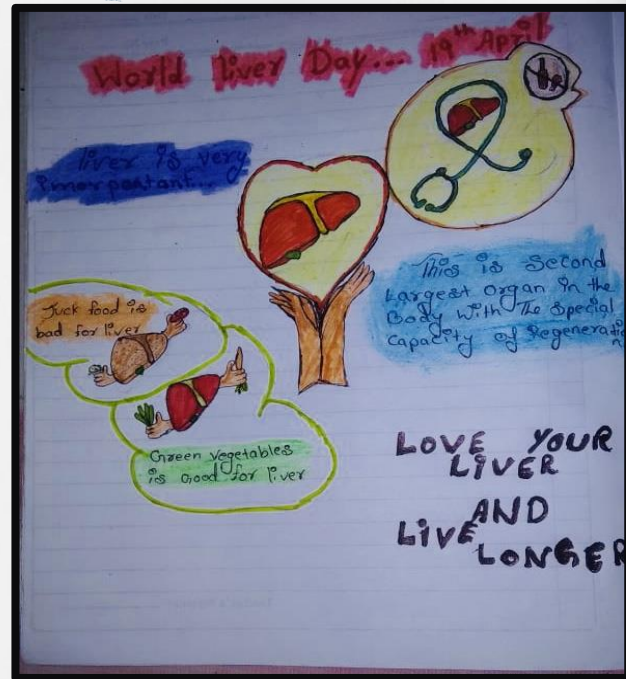 World liver Day... 19th April
liver is very
Imorportant...
This is Second
Largest Organ in the
Body With The Special
Capacity of Regeneration
Juck food is
bad for liver
Green vegetables
is Good for liver
LOVE YOUR
LIVER
AND
LIVE
LONGER